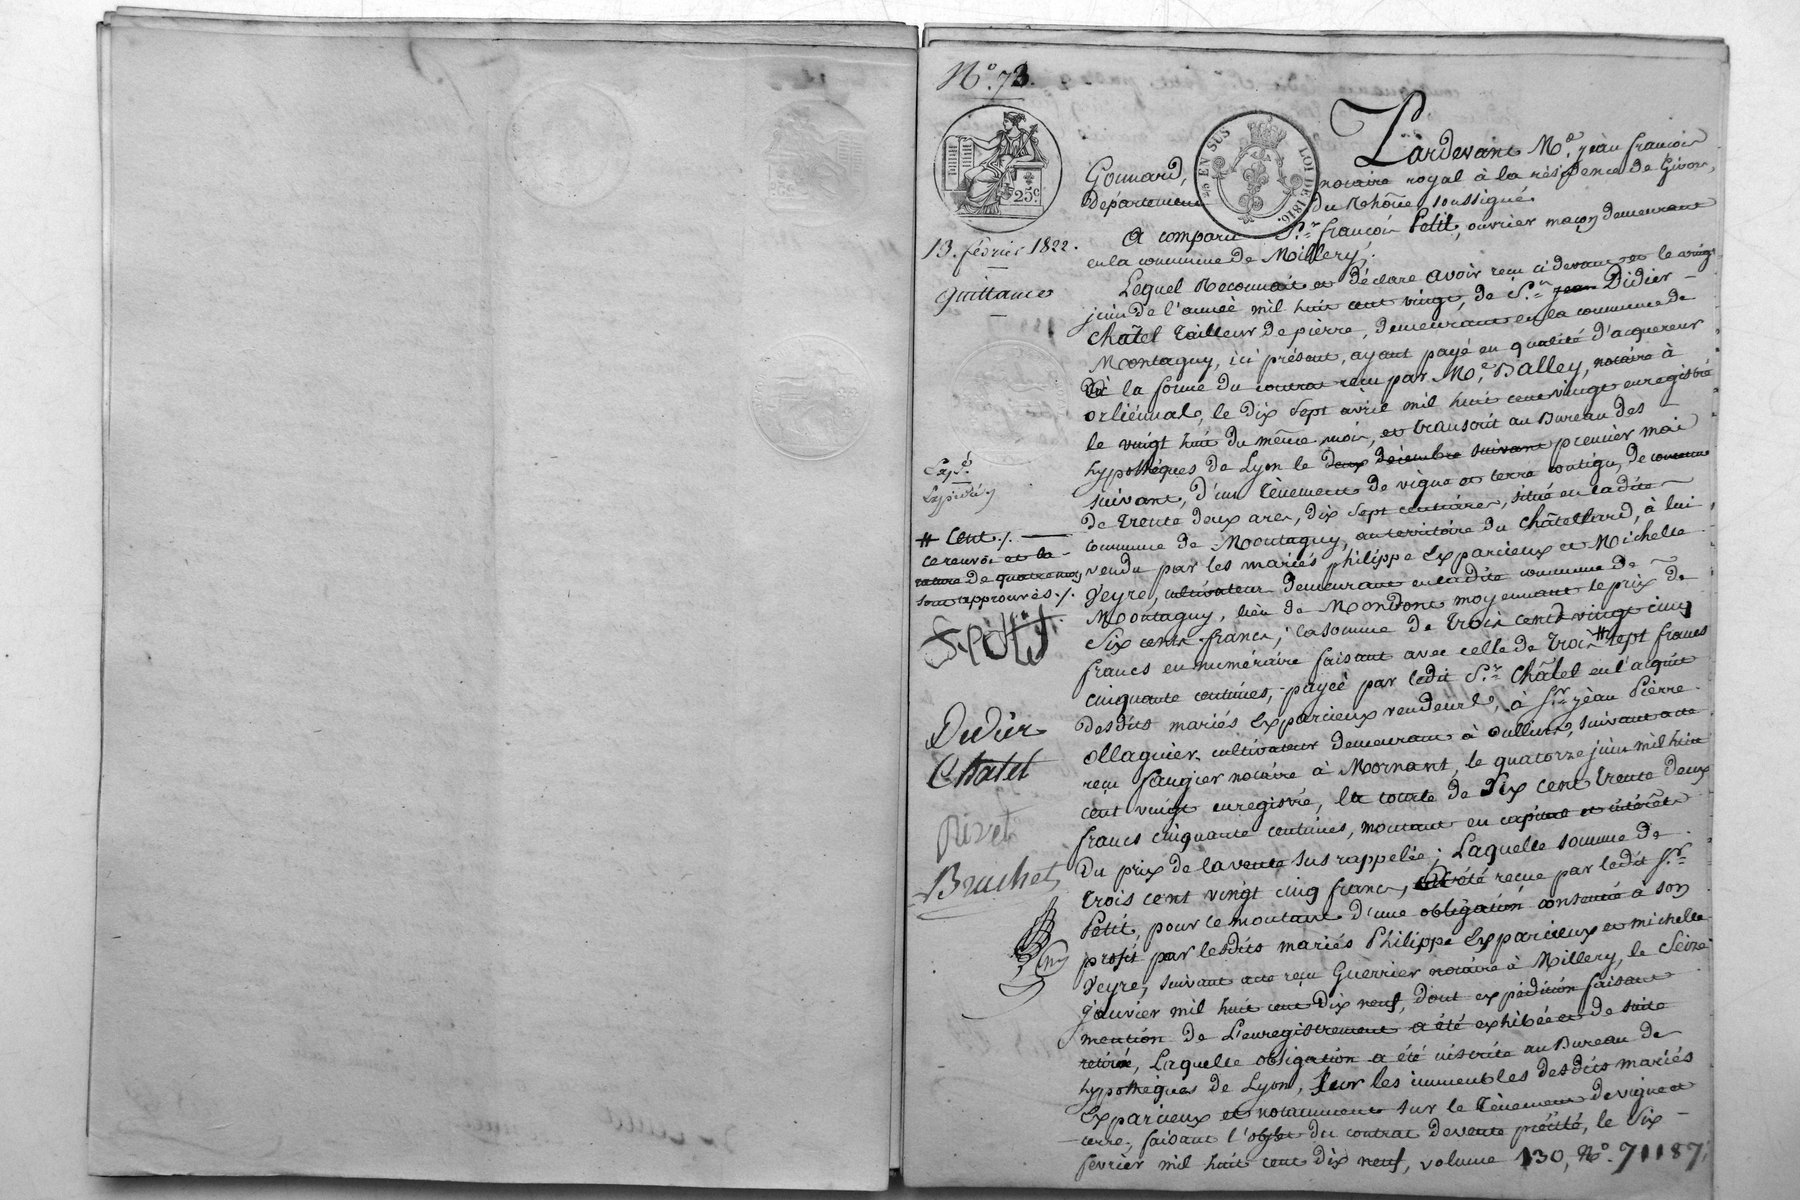 N.o 73.
25c.
25 EN SUS LOI DE 1816.
13. février 1822.
quittance
Pardevant M.e jean françois
Gonnard, notaire royal à la résidence de Givors,
département du Rhône soussigné
A comparu S.r françois Petit, ouvrier maçon demeurant
en la commune de Millery.
Lequel Reconnait et déclare avoir reçu ci devant et le vingt
juin de l'année mil huit cent vingt, de S.r jean Didier
Châtel tailleur de pierre, demeurant en la commune de
Montagny, ici présent, ayant payé en qualité d'acquereur
la somme du contrat reçu par M.e Balley, notaire à
orliénnas, le dix sept avril mil huit cent vingt enregistré
le vingt huit du même mois, et transcrit au Bureau des
hypothèques de Lyon le deux décembre suivant premier mai
suivant, d'un tènement de vigne et terre contigu, de contenue
de trente deux ares, dix sept centiares, situé en ladite
commune de Montagny, au territoire du Châtelard, à lui
vendu par les mariés philippe Exparcieux et Michelle
Veyre, cultivateur demeurant en ladite commune de
Montagny, lieu de Mondone moyennant le prix de
Six cents francs; la somme de trois cents vingt cinq
francs en numéraire faisant avec celle de trois # sept francs
cinquante centimes, payée par ledit S.r Châtel en l'acquit
desdits mariés Exparcieux vendeurs, à S.r jean Pierre
ollagnier, cultivateur demeurant à oullins, suivant acte
reçu faugier notaire à Mornant, le quatorze juin mil huit
cent vingt enregistré, la totale de Six cent trente deux
francs cinquante centimes, montant en capital et intérêts
du prix de la vente sus rappelée; Laquelle somme de
trois cent vingt cinq francs, a été reçue par ledit S.r
Petit, pour le montant d'une obligation consentie à son
profit par lesdits mariés Philippe Exparcieux et michelle
Veyre, suivant acte reçu Guerrier notaire à Millery, le Seize
janvier mil huit cent dix neuf, dont expédition faisant
mention de L'enregistrement a été exhibée et de suite
retirée, Laquelle obligation a été inscrite au Bureau de
hypothèques de Lyon, Sur les immeubles desdits mariés
Exparcieux et notamment sur le tènement de vigne et
terre, faisant l'objet du contrat de vente précité, le Six
février mil huit cent dix neuf, volume 130, N.o 71187,
# Cent ./.
ce renvoi et la
rature de quatre mots
sont approuvés ./.
Didier
Chatel
Rivet
Bruchet